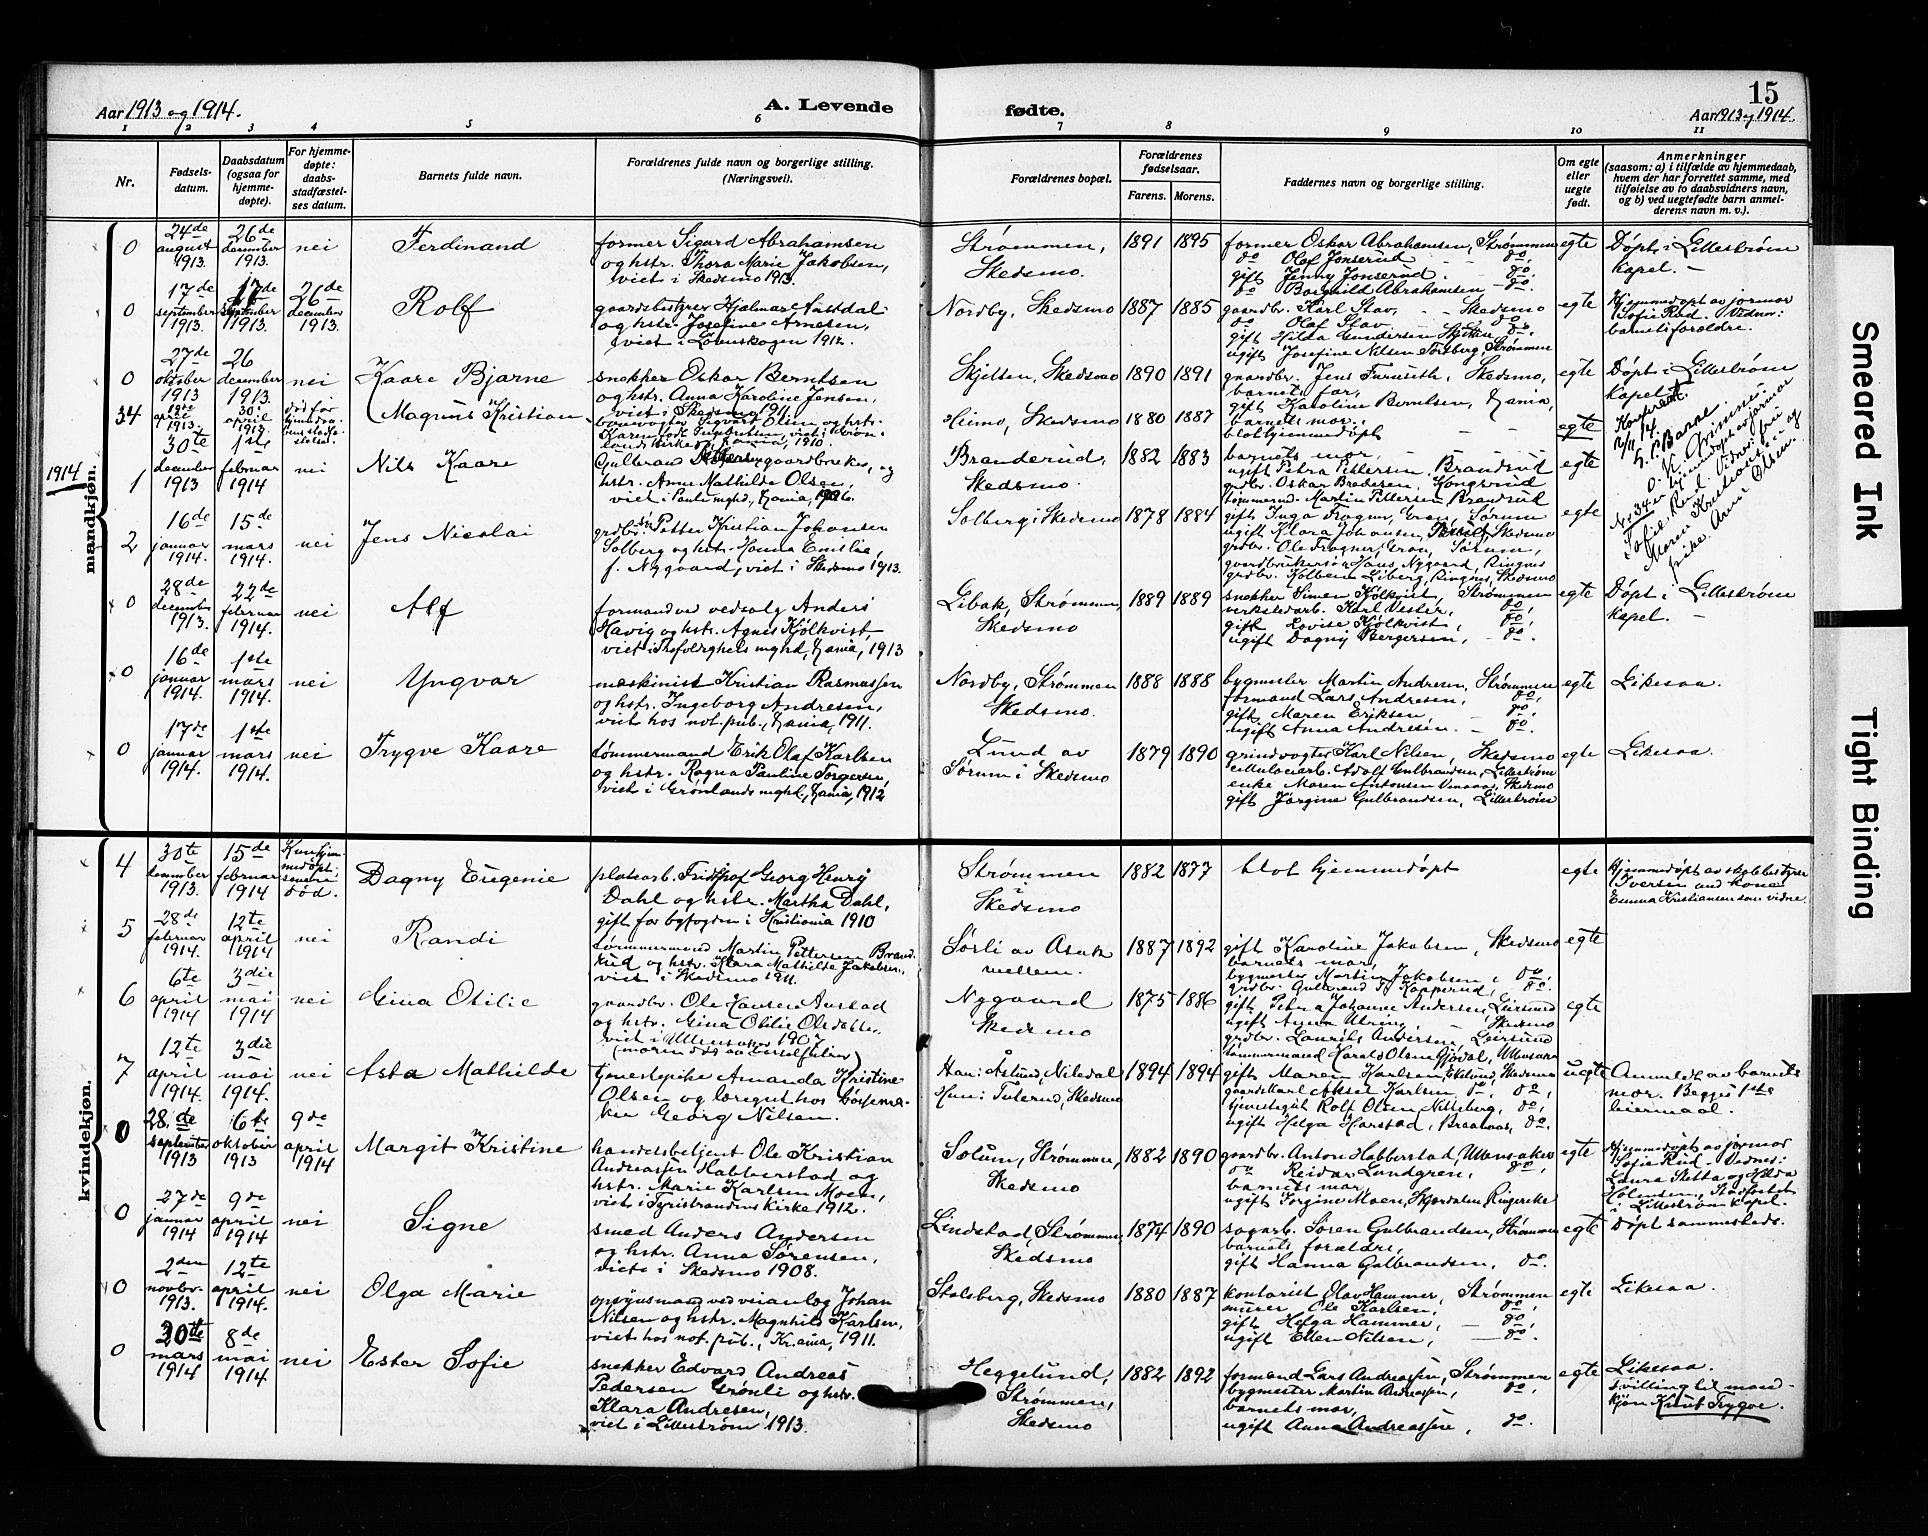 15
Aar 1913 og 1914.
A. Levende
fødte.
Aar 1913 og 1914.
1 2 3 4 5 6 7 8 9 10 11
Nr.
Fødsels-
datum.
Daabsdatum
(ogsaa for
hjemme-
døpte).
For hjemme-
døpte:
daabs-
stadfæstel-
ses datum.
Barnets fulde navn.
Forældrenes fulde navn og borgerlige stilling.
(Næringsvei).
Forældrenes bopæl.
Forældrenes
fødselsaar.
Farens. Morens.
Faddernes navn og borgerlige stilling.
Om egte
eller
uegte
født.
Anmerkninger
(saasom: a) i tilfælde av hjemmedaab,
hvem der har forrettet samme, med
tilføielse av to daabsvidners navn,
og b) ved uegtefødte barn anmel-
derens navn m. v.).
mandkjøn.
0
24de
august
1913.
26de
december
1913.
nei
Ferdinand
former Sigurd Abrahamsen
og hstr. Thora Marie Jakobsen,
viet i Skedsmo 1913.
Strømmen,
Skedsmo.
1891 1895
former Oskar Abrahamsen, Strømmen
do Olaf Jonserud - - do,
gift Jenny Jonserud. - do.
do Borghild Abrahamsen - do.
egte
Døpt i Lillestrøm
kapel. -
0
17de
september
1913.
17de
september
1913.
26de
december
1913.
Rolf
gaardsbestyrer Hjalmar Austdal
og hstr. Josefine Arnesen,
viet i Lørenskogen 1912.
Nordby, Skedsmo
1887 1885
gaardbr. Karl Stav, - - Skedsmo
do Olaf Stav do
gift Hilda Gundersen
ugift Josefine Nilsen Torsberg, Strømmen
egte
Hjemmedøpt av jormor
Sofie Rud. Vidner:
barnets forældre.
0
27de
oktober
1913
26
december
1913.
nei
Kaare Bjarne
snekker Oskar Berntsen
og hstr. Anna Karoline Jensen,
viet i Skedsmo 1911.
Skjetten, Skedsmo
1890 1891
gaardbr. Jens Furuseth, Skedsmo,
barnets far,
gift Karoline Berntsen, Krania,
barnets mor.
egte
Døpt i Lillestrøm
kapel.
34
april
1913.
30.
april
1913.
død før
Magnus Kristian
banevogter Sigvart Olsen og hstr.
1910.
Heimo, Skedsmo
1880 1887
blot hjemmedøpt
egte
Konfereret.
12/11 14
1914
1
30te
december
1913
1ste
februar
1914
nei
Nils Kaare
Gulbrand Pettersen gaardbruker, og
hstr. Anne Mathilde Olsen,
viet i Pauls mghd., Krania, 1906.
Branderud,
Skedsmo.
1882 1883
barnets mor,
ugift Petra Pettersen, Brandrud
grdbr. Oskar Bredesen, Kongsrud
tømmermd. Martin Pettersen Brandrud
egte
Nr 34 er hjemmedøpt av jormor
Sofie Rud. Vidner: frk
Maren Kristiansen og
frøken Anne Olsen.
2
16de
januar
1914.
15de
mars
1914.
nei
Jens Nicolai
grdbr. Petter Kristian Johansen
Solberg og hstr. Hanna Emilie,
f. Nygaard, viet i Skedsmo 1913.
Solberg i Skedsmo
1878 1884
gift Inga Frogner, Sørum
ugift Klara Johansen, Skedsmo
grdbr. Ole Frogner, Sørum,
gaardbrukersøn Hans Nygaard, Ringnes
grdbr. Kolbein Liberg, Ringnes, Skedsmo
egte
0
28de
december
1913.
22de
februar
1914.
nei
Alf
formand ved vedsalg Anders
Havig og hstr. Agnes Kjölkvist,
viet i Krania, 1913
Libak, Strømmen,
Skedsmo
1889 1889
snekker Simen Kjölkvist, Strømmen
verkstedarb. Karl Vister, do,
gift Lovise Kjölkvist, do,
ugift Dagny Bergersen, - do.
egte
Døpt i Lillestrøm
kapel. -
0
16de
januar
1914.
1ste
mars
1914.
nei
Yngvar
maskinist Kristian Rasmussen
og hstr. Ingeborg Andresen,
viet hos not. pub., Krania, 1911.
Nordby, Strømmen
Skedsmo.
1888 1888
bygmester Martin Andresen, Strømmen
formand Lars Andresen, do,
gift Maren Eriksen - do,
ugift Anna Andresen. - do.
egte
Likesaa.
0
17de
januar
1914.
1ste
mars
1914.
nei
Trygve Kaare
tømmermand Erik Olaf Karlsen
og hstr. Ragna Pauline Torgersen,
viet i Grønlands mghd., Krania, 1912
Lund av
Sørum i Skedsmo
1879 1890
grindvogter Karl Nilsen, Skedsmo
cellulosearb. Adolf Gulbrandsen, Lillestrøm
enke Maren Antonsen Skedsmo
gift Jørgine Gulbrandsen, Lillestrøm
egte
Likesaa.
kvindekjøn.
4
30te
december
1913.
15de
februar
1914
Kun hjem-
medøpt.
senere
død.
Dagny Eugenie
platearb. Fridtjof Georg Henry
Dahl og hstr. Martha Dahl,
gift for byfogden i Kristiania 1910
Strømmen
i
Skedsmo
1882 1877
blot hjemmedøpt
egte
Hjemmedøpt av skolebestyrer
Iversen med konen
Emma Kristiansen som vidne.
5
28de
februar
1914.
12te
april
1914
nei
Randi
tømmermand Martin Pettersen Brand-
rud og hstr. Klara Mathilde Jakobsen,
viet i Skedsmo 1911.
Sørli av Asak
mellem.
1887 1892
gift Karoline Jakobsen, Skedsmo
barnets mor,
bygmester Martin Jakobsen, do.
grdbr. Gulbrand T. Kopperud, do.
egte
6
6te
april
1914
3die
mai
1914
nei
Gina Otilie
gaardbr. Ole Hansen Aurstad
og hstr. Gina Otilie Olsdatter,
viet i Ullensaker 1907
Nygaard
Skedsmo
1875 1886
gift Petra Johanne Andersen, Leirsund
ugift Anna Skedsmo
grdbr. Laurits Andersen, Leirsund
tømmermand Harald Olsen Gjødal, Ullensaker
egte
7
12te
april
1914.
3die
mai
1914.
nei
Asta Mathilde
tjenestepike Amanda Kristine
Olsen og læregut hos børsema-
ker Georg Nilsen.
Han: Åslund, Nitedal
Hun: Tuterud, Skedsmo
1894 1894
gift Maren Karlsen, Eklund, Skedsmo
gaardskarl Aksel Karlsen, do, do,
tjenestegut Rolf Olsen Nitteberg, do,
ugift Helga Harstad, Braanaas, do.
uegte
Anmeldt av barnets
mor. Begges 1ste
leiermaal.
0
28.de
september
1913
6te
oktober
1913
9de
april
1914
Margit Kristine
handelsbetjent Ole Kristian
Andreassen Habberstad og
hstr. Marie Karlsen Moen,
viet i Tyristrandens kirke 1912.
Solum, Strømmen,
Skedsmo
1882 1890
gaardbr. Anton Habberstad, Ullensaker
do Reidar Lundgren, do,
barnets mor,
ugift Jorgine Moen, Skjerdalen Ringerike
egte
Hjemmedøpt av jormor
Sofie Rud. Vidner:
Laura Sletta og Hilda
Holensen, Stadfæstet
i Lillestrøm kapel.
0
27de
januar
1914
9de
april
1914
nei
Signe
smed Anders Andersen
og hstr. Anna Sørensen,
viet i Skedsmo 1908.
Lindstad, Strømmen,
Skedsmo
1874 1890
sagarb. Søren Gulbrandsen, Strømmen
barnets forældre,
gift Hanna Gulbrandsen, do.
egte
Døpt sammesteds.
0
2den
novbr.
1913.
12te
april
1914.
nei
Olga Marie
opsynsmand ved veianlæg Johan
Nilsen og hstr. Magnhild Karlsen,
viet hos not. pub., Kr.ania, 1911.
Stalsberg, Skedsmo
1880 1887
kontorist Olav Hammer, Strømmen
murer Ole Karlsen, do,
gift Helga Hammer, - do,
ugift Ellen Nilsen, - do.
egte
Likesaa.
0
30te
mars
1914
8de
mai
1914
nei
Ester Sofie
snekker Edvard Andreas
Pedersen Grønli og hstr.
Klara Andresen,
viet i Lillestrøm 1913.
Heggelund,
Strømmen,
Skedsmo
1882 1892
formand Lars Andreassen, Strømmen
bygmester Martin Andreassen, do,
barnets mor,
ugift Anna Andreassen, do.
egte
Likesaa.
Tvilling til mand-
kjøn Knut Trygve.
Smeared Ink
Tight Binding